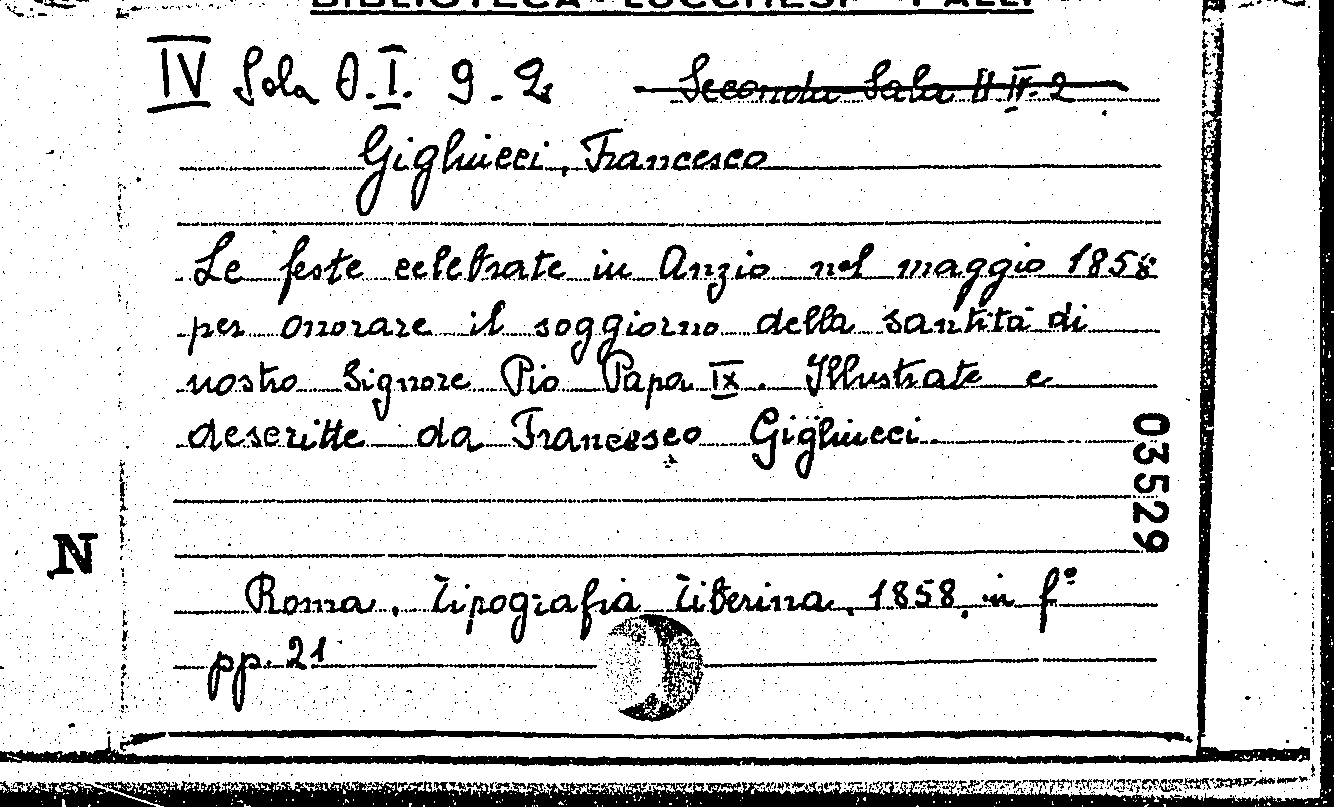 BIBLIOTECA LUCCHESI - PALLI
IV Sala O. I. 9. 2. Seconda Sala H IV. 2
Gigliucci, Francesco
Le feste celebrate in Anzio nel maggio 1858
per onorare il soggiorno della santità di
nostro Signore Pio Papa IX. Illustrate e
descritte da Francesco Gigliucci.
03529
N
Roma, Tipografia Tiberina, 1858, in fº
pp. 21